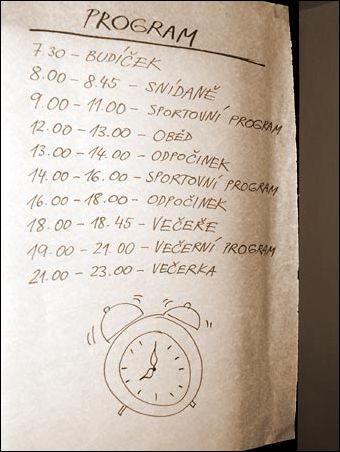 PROGRAM
7.30 - BUDÍČEK
8.00 - 8.45 - SNÍDANĚ
9.00 - 11.00 - SPORTOVNÍ PROGRAM
12.00 - 13.00 - OBĚD
13.00 - 14.00 - ODPOČINEK
14.00 - 16.00 - SPORTOVNÍ PROGRAM
16.00 - 18.00 - ODPOČINEK
18.00 - 18.45 - VEČEŘE
19.00 - 21.00 - VEČERNÍ PROGRAM
21.00 - 23.00 - VEČERKA